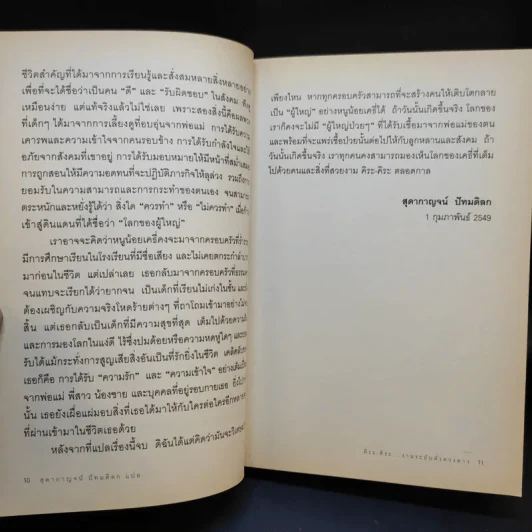 ชีวิตสำคัญที่ได้มาจากการเรียนรู้และสั่งสมหลายสิ่งหลายอย่าง
เพื่อที่จะได้ชื่อว่าเป็นคน “ดี” และ “รับผิดชอบ” ในสังคม
เหมือนง่าย แต่แท้จริงแล้วไม่ใช่เลย เพราะสองสิ่งนี้คือผล
ที่เด็กๆ ได้มาจากการเลี้ยงดูที่อบอุ่นจากพ่อแม่ การได้รับความ
เคารพและความเข้าใจจากคนรอบข้าง การได้รับกำลังใจและ
อภัยจากสังคมที่เขาอยู่ การได้รับมอบหมายให้มีหน้าที่
การถูกสอนให้มีความอดทนที่จะปฏิบัติภารกิจให้ลุล่วง รวมถึง
ยอมรับในความสามารถและการกระทำของตนเอง จนสามารถ
ตระหนักและหยั่งรู้ได้ว่า สิ่งใด “ควรทำ” หรือ “ไม่ควรทำ” เมื่อ
เข้าสู่ดินแดนที่ได้ชื่อว่า “โลกของผู้ใหญ่”
เราอาจจะคิดว่าหนูน้อยเครี่คงจะมาจากครอบครัวที่ร่ำรวย
มีการศึกษาเรียนในโรงเรียนที่มีชื่อเสียง และไม่เคยตกระกำ
มาก่อนในชีวิต แต่เปล่าเลย เธอกลับมาจากครอบครัวที่
จนแทบจะเรียกได้ว่ายากจน เป็นเด็กที่เรียนไม่เก่งในชั้น และ
ต้องเผชิญกับความจริงโหดร้ายต่างๆ ที่ถาโถมเข้ามาอย่างไม่
สิ้น แต่เธอกลับเป็นเด็กที่มีความสุขที่สุด เต็มไปด้วยความ
และการมองโลกในแง่ดี ไร้ซึ่งปมด้อยหรือความหดหู่ใดๆ
รับได้แม้กระทั่งการสูญเสียสิ่งอันเป็นที่รักยิ่งในชีวิต เคล็ดลับ
เธอก็คือ การได้รับ “ความรัก” และ “ความเข้าใจ” อย่างเต็มเปี่ยม
จากพ่อแม่ พี่สาว น้องชาย และบุคคลที่อยู่รอบกายเธอ ยิ่งไปกว่า
นั้น เธอยังเผื่อแผ่มอบสิ่งที่เธอได้มาให้กับใครต่อใครอีกหลาย
ที่ผ่านเข้ามาในชีวิตเธอด้วย
หลังจากที่แปลเรื่องนี้จบ ดิฉันได้แต่คิดว่ามันจะวิเศษ
10 สุดากาญจน์ ปัทมดิลก แปล
เพียงไหน หากทุกครอบครัวสามารถที่จะสร้างคนให้เติบโตกลาย
เป็น “ผู้ใหญ่” อย่างหนูน้อยเครี่ได้ ถ้าวันนั้นเกิดขึ้นจริง โลกของ
เราก็คงจะไม่มี “ผู้ใหญ่ป่วยๆ” ที่ได้รับเชื้อมาจากพ่อแม่ของตน
และพร้อมที่จะแพร่เชื้อป่วยนั้นต่อไปให้กับลูกหลานและสังคม ถ้า
วันนั้นเกิดขึ้นจริง เราทุกคนคงสามารถมองเห็นโลกของเครี่ที่เต็ม
ไปด้วยคนและสิ่งที่สวยงาม คิระ-คิระ ตลอดกาล
สุดากาญจน์ ปัทมดิลก
1 กุมภาพันธ์ 2549
คิระ คิระ...งามระยับดั่งดวงดาว 11